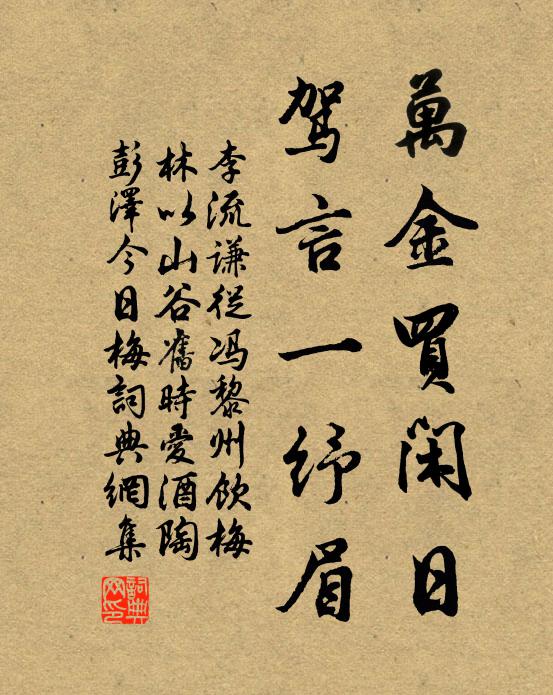 萬金買閑日
駕言一紓眉
李流謙從馮黎州飲梅
林以山谷舊時愛酒陶
彭澤今日梅詞典網集
詞典网印